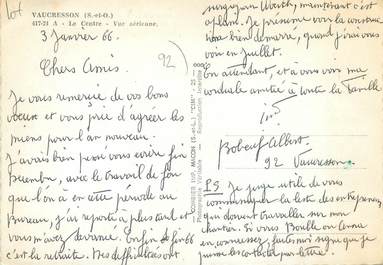 lot
VAUCRESSON (S.-et-O.)
417-21 A - Le Centre - Vue aérienne.
3 Janvier 66.
92
Chers Amis.
Je vous remercie de vos bons
vœux et vous prie d'agréer les
miens pour l'an nouveau.
J'avais bien pensé vous écrire fin
Décembre, avec le travail de fou
que l'on a en cette période au
Bureau, j'ai reporté à plus tard et
vous m'avez devancé. En fin 66
c'est la retraite. Des difficultés ont
COMBIER IMP. MACON (S.-et-L.) "CIM"
Photographie Véritable - Reproduction Interdite
maintenant c'est
aplani. Je pense voir la construc
bien démarrée, quand j'irai vous
voir en Juillet.
En attendant, et à vous voir ma
cordiale amitié à toute la famille
Bobeuf Albert
92 Vaucresson.
PS. Je juge utile de vous
communiquer la liste des entrepreneurs
qui doivent travailler sur mon
chantier. Si vous
en connaissez, faites moi signe que je
puisse les contacter par lettre.